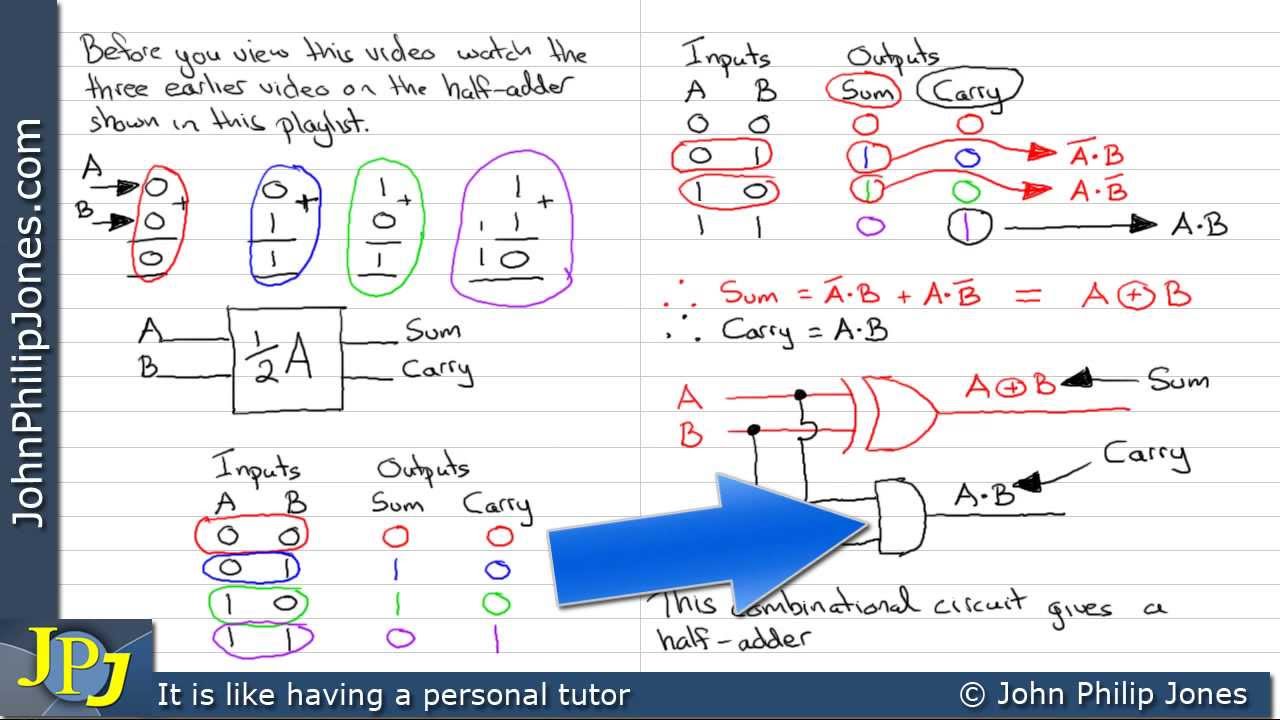 Before you view this video watch the
three earlier video on the half-adder
shown in this playlist.
A
B
0
0 +
0
0
1 +
1
1
0 +
1
1
1 1 +
1 0
A
B
½A
Sum
Carry
Inputs Outputs
A B Sum Carry
0 0 0 0
0 1 1 0
1 0 1 0
1 1 0 1
Inputs Outputs
A B Sum Carry
0 0 0 0
0 1 1 0 A̅·B
1 0 1 0 A·B̅
1 1 0 1 A·B
∴ Sum = A̅·B + A·B̅ = A ⊕ B
∴ Carry = A·B
A
B
A ⊕ B Sum
Carry
A·B
This combinational circuit gives a
half-adder
JohnPhilipJones.com
JPJ
It is like having a personal tutor
© John Philip Jones